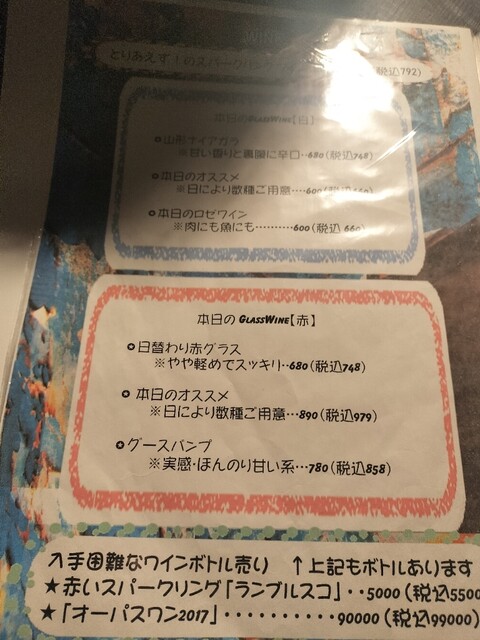 WINE
とりあえず!のスパークリン
(税込792)
本日のGLASSWINE【白】
山形ナイアガラ
※甘い香りと裏腹に辛口‥680(税込748)
本日のオススメ
※日により数種ご用意‥‥600(税込660)
本日のロゼワイン
※肉にも魚にも‥‥‥‥600(税込 660)
本日の GLASSWINE【赤】
日替わり赤グラス
※やや軽めでスッキリ‥680(税込748)
本日のオススメ
※日により数種ご用意…890(税込979)
グースバンプ
※実感・ほんのり甘い系…780(税込858)
入手困難なワインボトル売り ↑上記もボトルあります
★赤いスパークリング「ランブルスコ」‥5000(税込5500
★「オーパスワン2017」‥‥‥‥‥90000(税込99000)